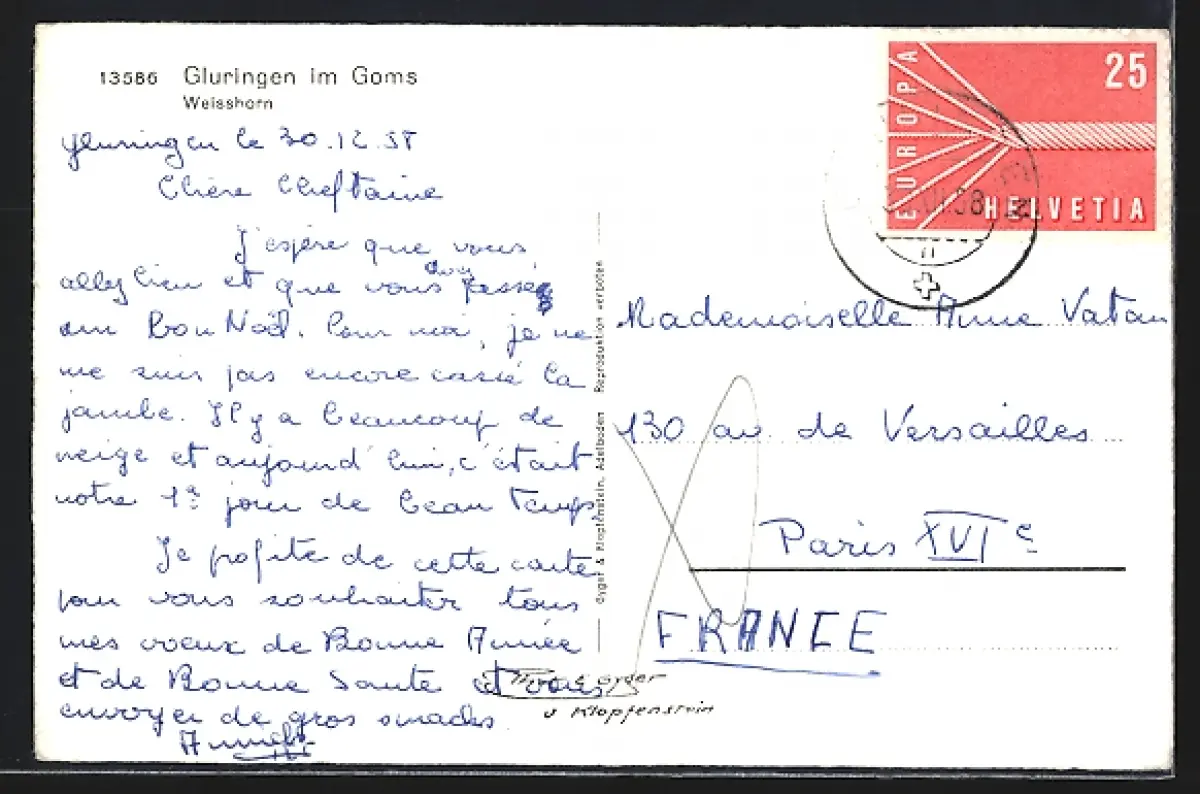 13586 Gluringen im Goms
Weisshorn
Gluringen le 30.12.58
Chère Cheftaine
J'espère que vous
allez bien et que vous avez passé
un Bon Noël. Pour moi, je ne
me suis pas encore cassé la
jambe. Il y a beaucoup de
neige et aujourd'hui, c'était
notre 1er jour de beau temps.
Je profite de cette carte
pour vous souhaiter tous
mes voeux de Bonne Année
et de Bonne Santé et vous
envoyer de gros
Gyger & Klopfenstein, Adelboden Reproduktion verboten
EUROPA
25
HELVETIA
Mademoiselle Anne Vatan
130 av de Versailles
Paris XVIe
FRANCE
Gyger
u Klopfenstein